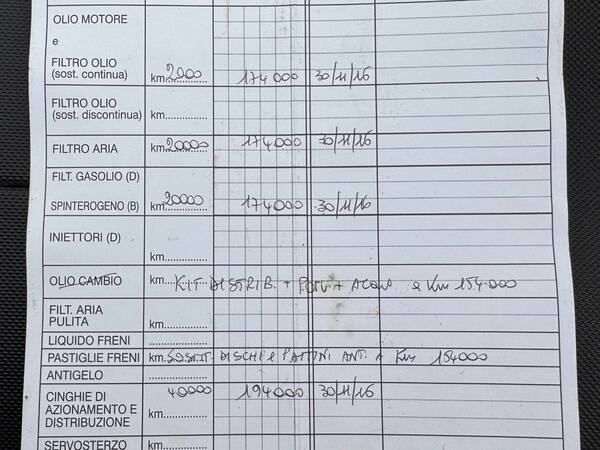 OLIO MOTORE
e
FILTRO OLIO
(sost. continua) km. 2000 174000 30/11/16
FILTRO OLIO
(sost. discontinua) km..............
FILTRO ARIA km. 20000 174000 30/11/16
FILT. GASOLIO (D)
SPINTEROGENO (B) km. 20000 174000 30/11/16
INIETTORI (D)
km..............
OLIO CAMBIO km. KIT DISTRIB. + POMPA ACQUA a Km 154.000
FILT. ARIA
PULITA km..............
LIQUIDO FRENI ..............
PASTIGLIE FRENI km. SOSTIT. DISCHI e PATTINI ANT. A Km 154000
ANTIGELO ..............
CINGHIE DI 40000 194000 30/11/16
AZIONAMENTO E
DISTRIBUZIONE km..............
SERVOSTERZO km